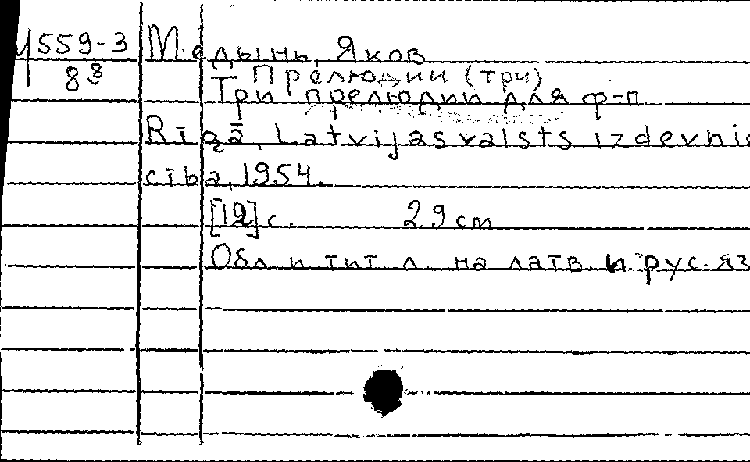 У559-3 Медынь, Яков
83 Прелюдии (три)
Три прелюдии для ф-п
Rīgā, Latvijas valsts izdevnie
cība, 1954.
[12] с. 29 см
Обл и тит л. на латв. и рус. яз